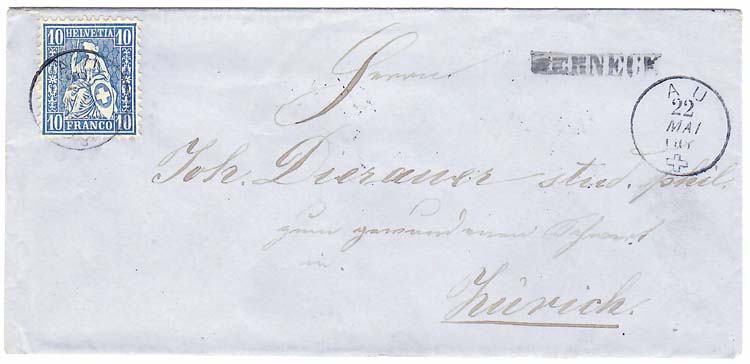 10 HELVETIA 10
10 FRANCO 10
BERNECK
AU
22
MAI
Herrn
Joh. Dierauer stud. phil.
zum gewundenen Schwert
in
Zürich.